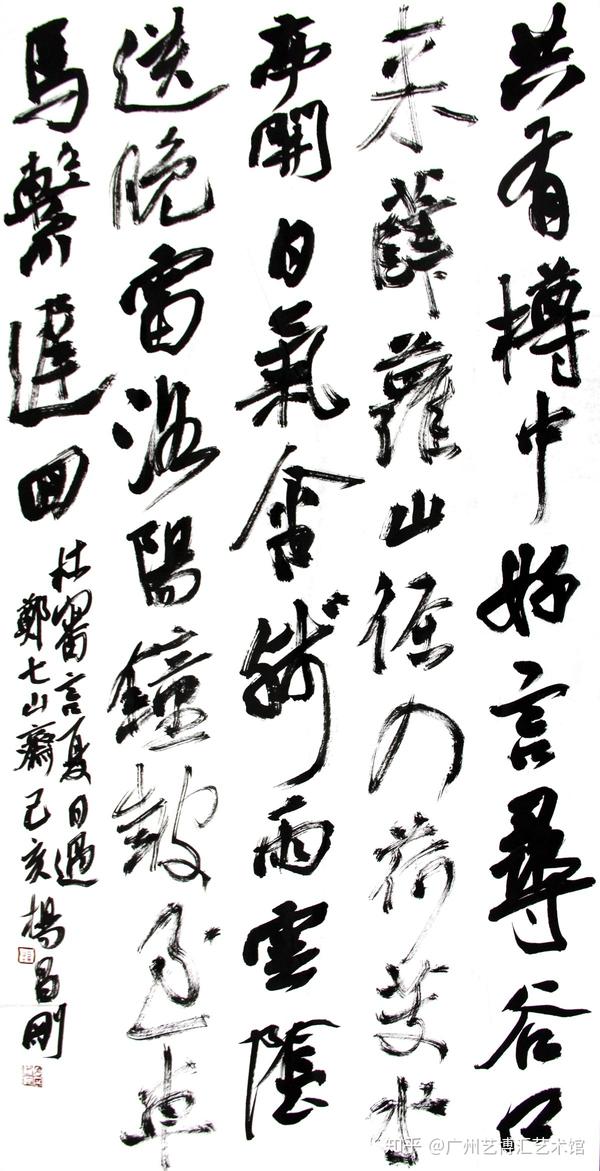 共有樽中好言尋谷口
来薜蘿山徑入荷芰水
亭開日氣含殘雨雲陰
送晚雷洛陽鐘鼓至車
馬繫遲回
杜審言夏日過
鄭七山齋己亥楊昌剛
知乎 @广州艺博汇艺术馆